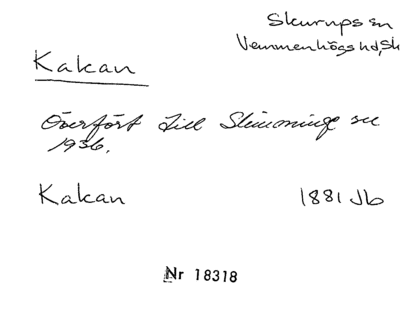 Skurups sn
Vemmenhögs hd, Sk
Kakan
Överfört till Slimminge sn
1936.
Kakan 1881 Jb
Nr 18318